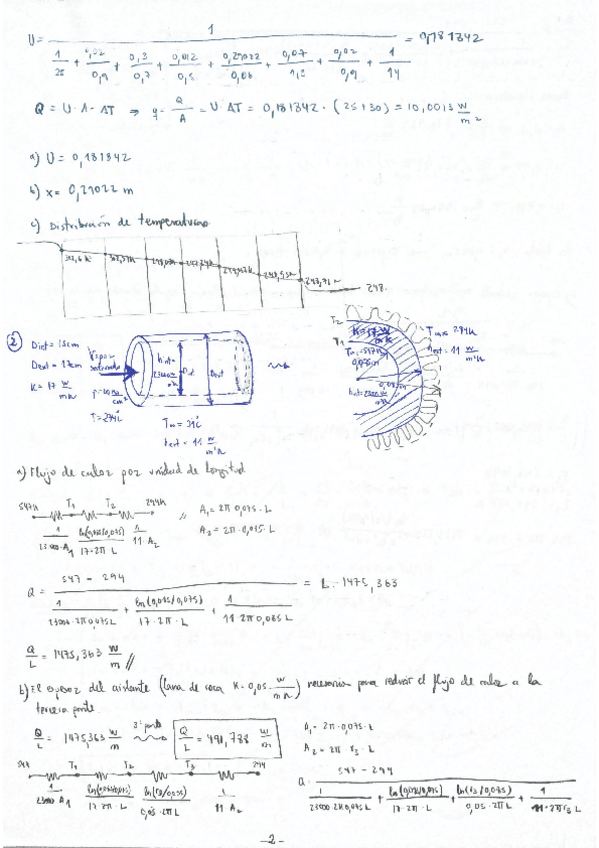 U = 1 / (1/25 + 0,02/0,9 + 0,3/0,7 + 0,012/0,5 + 0,29022/0,06 + 0,07/1,3 + 0,02/0,9 + 1/14) = 0,181842
Q = U · A · ΔT ⇒ q = Q/A = U · ΔT = 0,181842 · (25+30) = 10,0013 W/m²
a) U = 0,181842
b) x = 0,29022 m
c) Distribución de temperaturas
248
② Dint = 15cm
Dext = 17cm
K = 17 W/mK
Vapor saturado
T = 274ºC
hint =
Dint
Dext
T∞ = 21ºC
hext = 11 W/m²K
T2
T1
K = 17 W/mK
T∞ = 294K
hext = 11 W/m²K
a) Flujo de calor por unidad de longitud
547K T1 T2 294K
1/23000·A1 ln(0,085/0,075)/17·2π·L 1/11·A2
A1 = 2π 0,075 · L
A2 = 2π · 0,085 · L
Q = (547 - 294) / (1/23000·2π0,075L + ln(0,085/0,075)/17·2π·L + 1/11 2π 0,085L) = L · 1475,363
Q/L = 1475,363 W/m //
b) El espesor del aislante (lana de roca K = 0,05 W/mK) necesario para reducir el flujo de calor a la
tercera parte.
Q/L = 1475,363 W/m 3ª parte Q/L = 491,788 W/m
A1 = 2π · 0,075 · L
A2 = 2π · r3 · L
547 T1 T2 T3 294
1/23000 A1 ln(0,085/0,075)/17·2π·L ln(r3/0,085)/0,05·2πL 1/11·A2
Q = (547 - 294) / (1/23000·2π0,075L + ln(0,085/0,075)/17·2π·L + ln(r3/0,085)/0,05·2πL + 1/11·2πr3L)
-2-